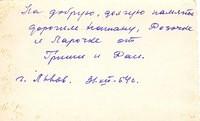 На добрую, долгую память
дорогим Наташу, Розочке
и Ларочке от
Гриши и Раи.
г. Львов. 31-XII-54г.